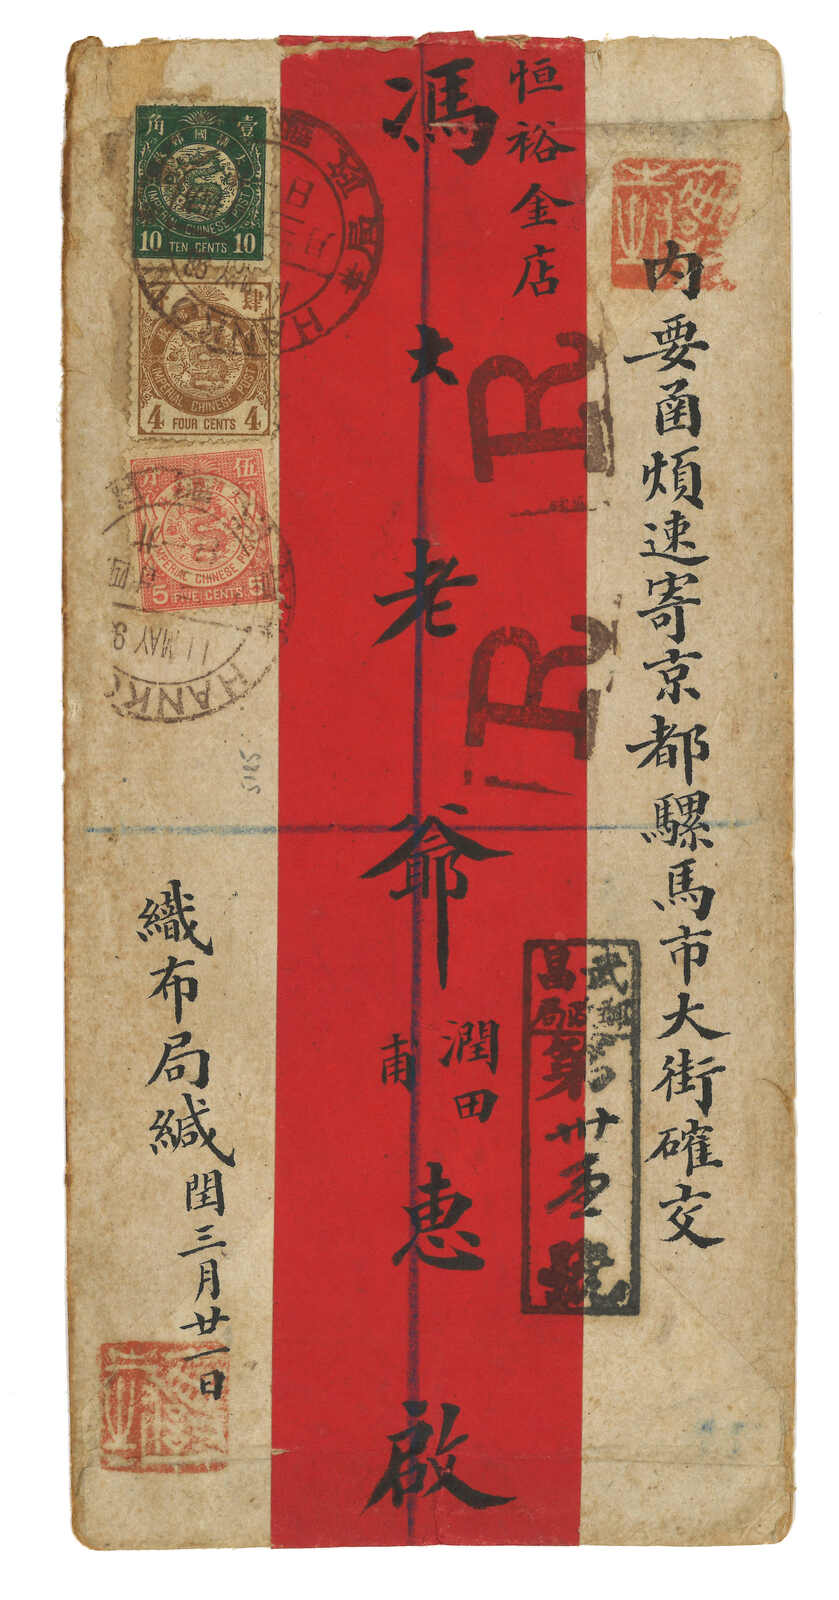 內要函煩速寄京都騾馬市大街確交
恒裕金店
馮大老爺
潤田
甫
惠啟
織布局緘閏三月廿一日
武昌
第卅
號
R
R
壹
角
大清國郵政
IMPERIAL CHINESE POST
10 TEN CENTS 10
肆
IMPERIAL CHINESE POST
4 FOUR CENTS 4
伍
分
IMPERIAL CHINESE POST
5 FIVE CENTS 5
11 MAY
5185